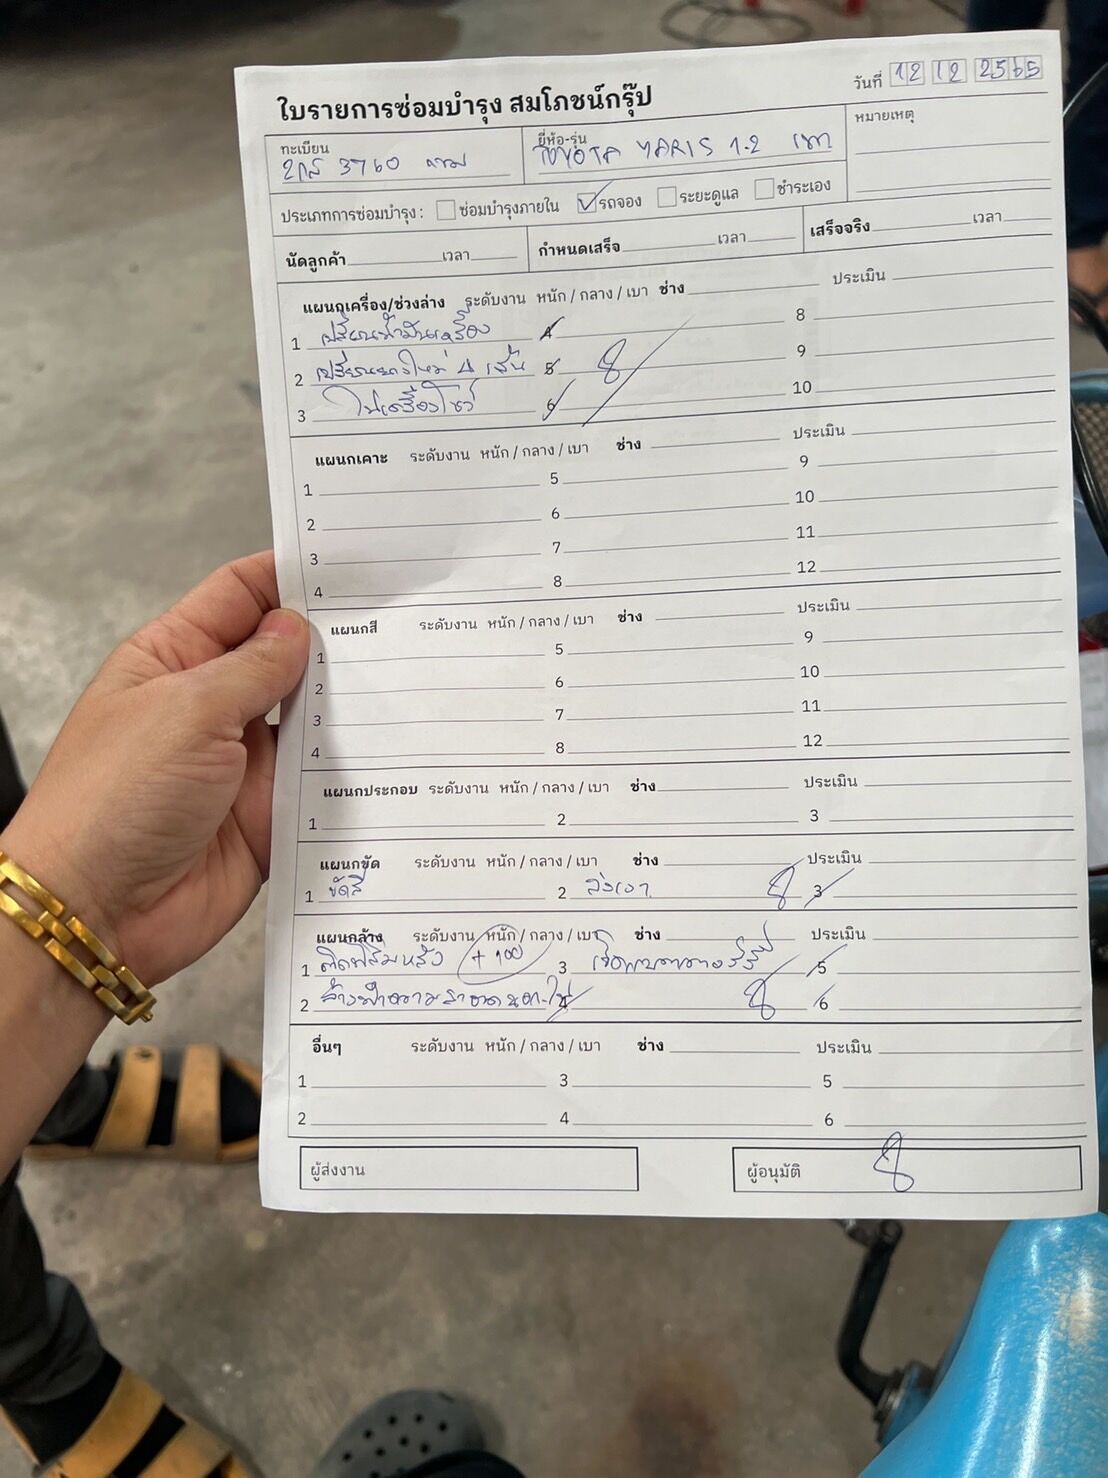 ใบรายการซ่อมบำรุง สมโภชน์กรุ๊ป
วันที่ 12 12 2565
ทะเบียน
2กส 3760 กทม
ยี่ห้อ-รุ่น
TOYOTA YARIS 1.2 เทา
หมายเหตุ
ประเภทการซ่อมบำรุง : ซ่อมบำรุงภายใน รถจอง ระยะดูแล ชำระเอง
นัดลูกค้า เวลา กำหนดเสร็จ เวลา เสร็จจริง เวลา
แผนกเครื่อง/ช่วงล่าง ระดับงาน หนัก / กลาง / เบา ช่าง ประเมิน
1 เปลี่ยนน้ำมันเครื่อง 4 8
2 เปลี่ยนยางใหม่ 4 เส้น 5 9
3 ไฟเครื่องโชว์ 6 10
แผนกเคาะ ระดับงาน หนัก / กลาง / เบา ช่าง ประเมิน
1 5 9
2 6 10
3 7 11
4 8 12
แผนกสี ระดับงาน หนัก / กลาง / เบา ช่าง ประเมิน
1 5 9
2 6 10
3 7 11
4 8 12
แผนกประกอบ ระดับงาน หนัก / กลาง / เบา ช่าง ประเมิน
1 2 3
แผนกขัด ระดับงาน หนัก / กลาง / เบา ช่าง ประเมิน
1 ขัดสี 2 ลงเงา 3
แผนกล้าง ระดับงาน หนัก / กลาง / เบา ช่าง ประเมิน
1 ติดฟิล์มหลัง + 100 3 5
2 ล้างทำความสะอาดนอก-ใน 4 6
อื่นๆ ระดับงาน หนัก / กลาง / เบา ช่าง ประเมิน
1 3 5
2 4 6
ผู้ส่งงาน ผู้อนุมัติ